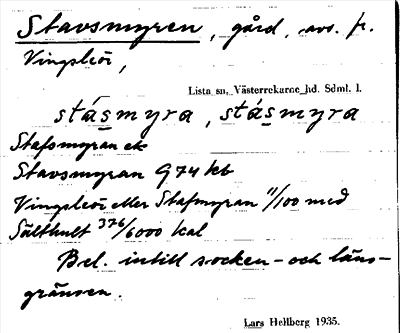 Stavsmyren, gård, avs. fr.
Vingsleör,
Lista sn, Västerrekarne hd. Sdml. l.
stásmyra, stásmyra
Stafsmyran ek
Stavsmyran G 74 kb
Vingsleör eller Stafmyran 11/100 med
Sälthult 376/6000 kal
Bel. intill socken- och läns-
gränsen.
Lars Hellberg 1935.